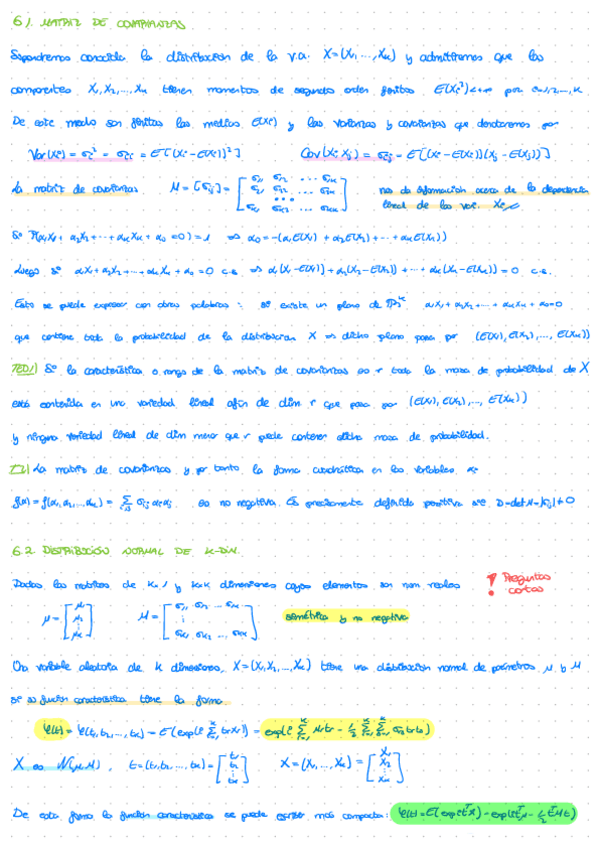 6.1. MATRIZ DE COVARIANZAS.
Supondremos conocida la distribución de la v.a. X=(X₁,...,Xₖ) y admitiremos que las
componentes X₁,X₂,...,Xₖ tienen momentos de segundo orden finitos E(Xᵢ²)<+∞ para i=1,2,...,k.
De este modo son finitas las medias E(Xᵢ) y las varianzas y covarianzas que denotaremos por
Var(Xᵢ) = σᵢ² = σᵢᵢ = E[(Xᵢ-E(Xᵢ))²] Cov(Xᵢ,Xⱼ) = σᵢⱼ = E[(Xᵢ-E(Xᵢ))(Xⱼ-E(Xⱼ))]
La matriz de covarianzas M = [σᵢⱼ] = [σ₁₁ σ₁₂ ... σ₁ₖ
σ₂₁ σ₂₂ ... σ₂ₖ
...
σₖ₁ σₖ₂ ... σₖₖ] nos da información acerca de la dependencia
lineal de las var. Xᵢ
Si P(α₁X₁ + α₂X₂ + ... + αₖXₖ + α₀ = 0) = 1 ⇒ α₀ = -(α₁E(X₁) + α₂E(X₂) + ... + αₖE(Xₖ))
Luego si α₁X₁+α₂X₂+...+αₖXₖ+α₀=0 c.s. ⇒ α₁(X₁-E(X₁)) + α₂(X₂-E(X₂)) + ... + αₖ(Xₖ-E(Xₖ)) = 0 c.s.
Esto se puede expresar con otras palabras: si existe un plano de ℝᵏ α₁X₁+α₂X₂+...+αₖXₖ+α₀=0
que contiene toda la probabilidad de la distribución X ⇒ dicho plano pasa por (E(X₁),E(X₂),...,E(Xₖ))
TEO.1) Si la característica o rango de la matriz de covarianzas es r toda la masa de probabilidad de X
está contenida en una variedad lineal afín de dim r que pasa por (E(X₁),E(X₂),...,E(Xₖ))
y ninguna variedad lineal de dim menor que r puede contener dicha masa de probabilidad.
La matriz de covarianzas y por tanto la forma cuadrática en las variables αᵢ
f(α) = f(α₁,α₂,...,αₖ) = Σᵢ,ⱼ σᵢⱼαᵢαⱼ es no negativa. Es precisamente definida positiva sii D=det M=|σᵢⱼ|≠0
6.2. DISTRIBUCIÓN NORMAL DE K-DIM.
Dadas las matrices de kx1 y kxk dimensiones cuyos elementos son núm reales
! Preguntas
cortas
μ = [μ₁
μ₂
⋮
μₖ] M = [σ₁₁ σ₁₂ ... σ₁ₖ
⋮
σₖ₁ σₖ₂ ... σₖₖ] simétrica y no negativa
Una variable aleatoria de k dimensiones, X=(X₁,X₂,...,Xₖ) tiene una distribución normal de parámetros μ y M
si su función característica tiene la forma
φ(t) = φ(t₁,t₂,...,tₖ) = E(exp(i Σ tᵣXᵣ)) = exp(i Σ μᵣtᵣ - 1/2 Σ Σ σᵣₛtᵣtₛ)
X es N(μ,M), t=(t₁,t₂,...,tₖ) = [t₁
t₂
⋮
tₖ] X = (X₁,...,Xₖ) = [X₁
X₂
⋮
Xₖ]
De esta forma la función característica se puede escribir más compacta: φ(t) = E(exp(itᵀX)) = exp(itᵀμ - 1/2 tᵀMt)